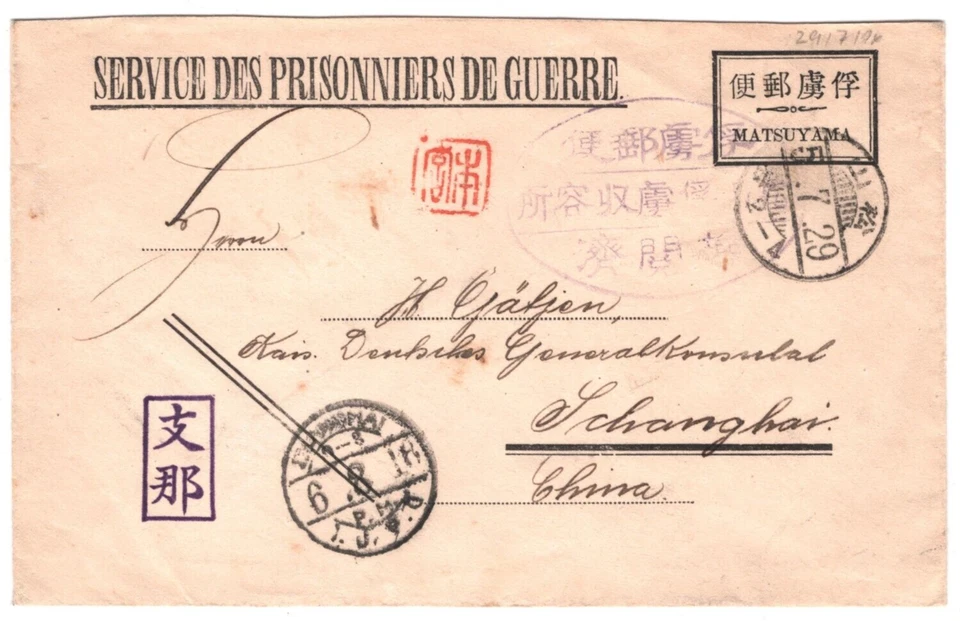 SERVICE DES PRISONNIERS DE GUERRE.
俘虜郵便
MATSUYAMA
俘虜郵便
俘虜收容所
閲濟
松山
7.29
Herrn
H. Tjätjen,
Kais. Deutsches Generalkonsulat
Schanghai.
China.
支那
SHANGHAI
6 8
I.J.P.O